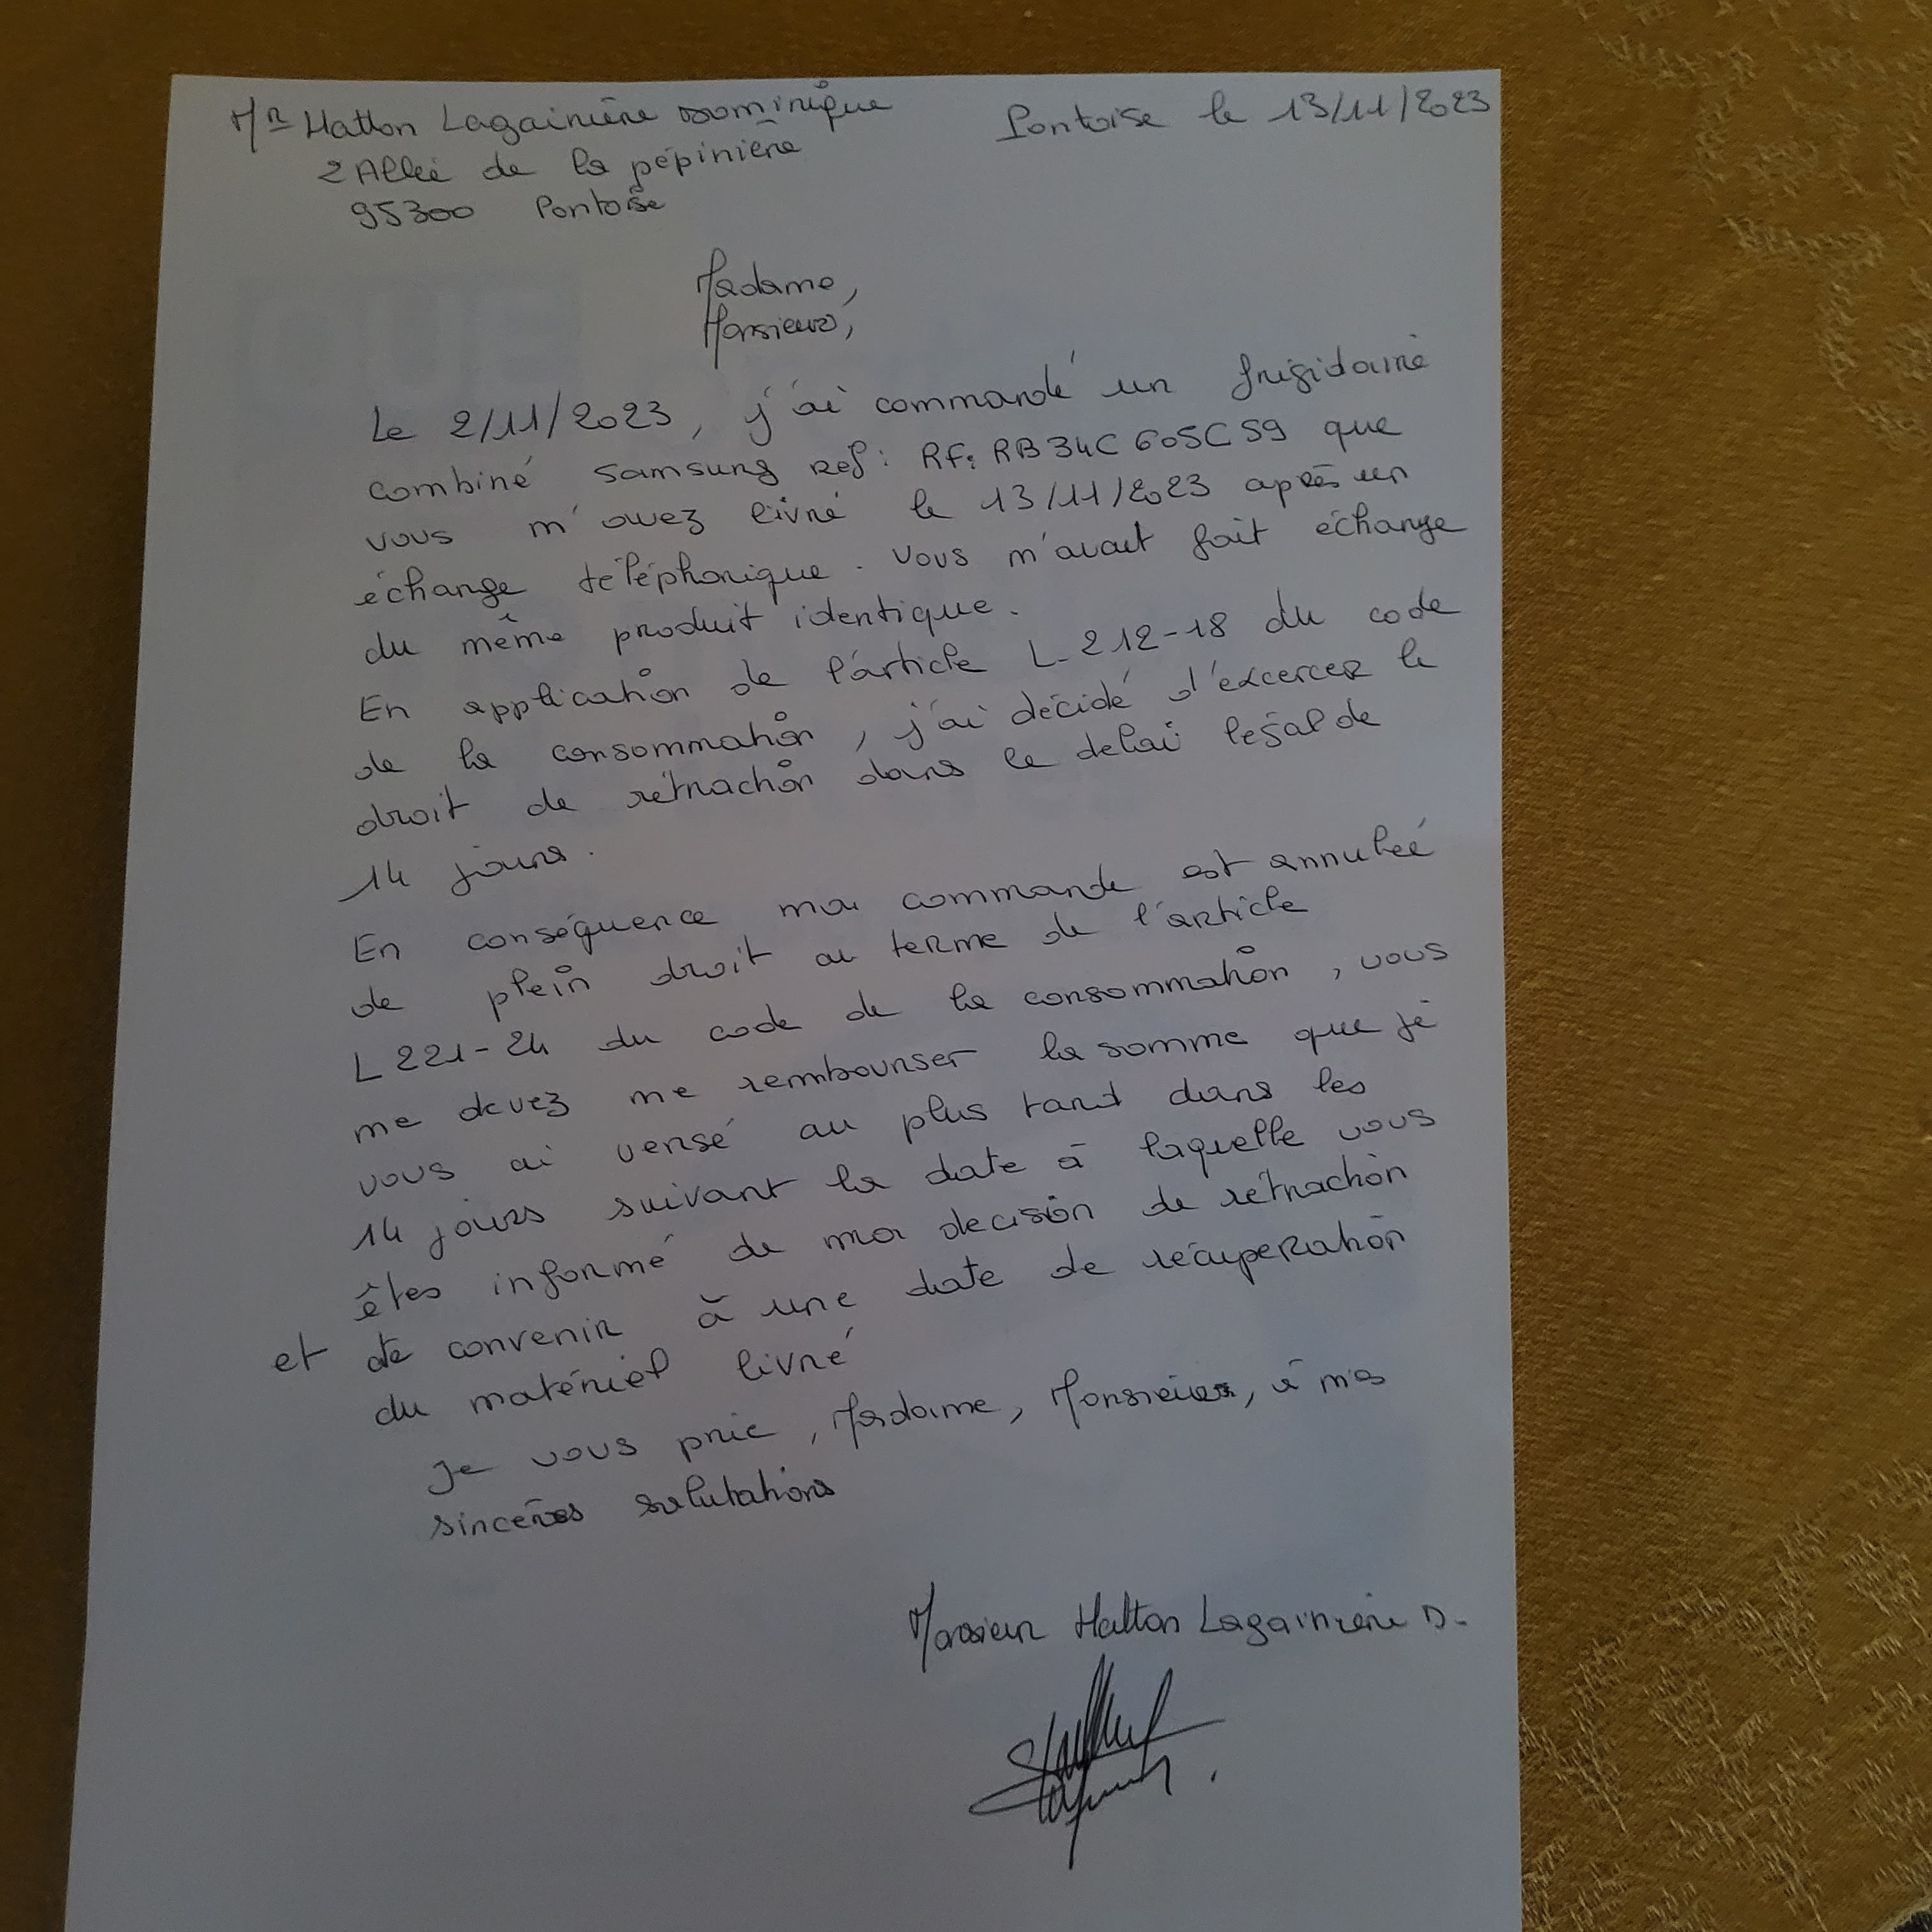 Mr Hatton Lagainière Dominique
Pontoise le 13/11/2023
2 Allée de la pépinière
95300 Pontoise
Madame,
Monsieur,
Le 2/11/2023, j'ai commandé un frigidaire
combiné Samsung Ref: RF: RB34C605CS9 que
vous m'avez livré le 13/11/2023 après un
échange téléphonique. Vous m'avait fait échange
du même produit identique.
En application de l'article L-212-18 du code
de la consommation, j'ai décidé d'excercer le
droit de rétraction dans le delai légal de
14 jours.
En conséquence ma commande est annulée
de plein droit au terme de l'article
L221-24 du code de la consommation, vous
me devez me rembourser la somme que je
vous ai versé au plus tard dans les
14 jours suivant la date à laquelle vous
êtes informé de ma decision de rétraction
et de convenir à une date de récuperation
du matériel livré
Je vous prie, Madame, Monsieur, à mes
sincères salutations
Monsieur Hatton Lagainière D.